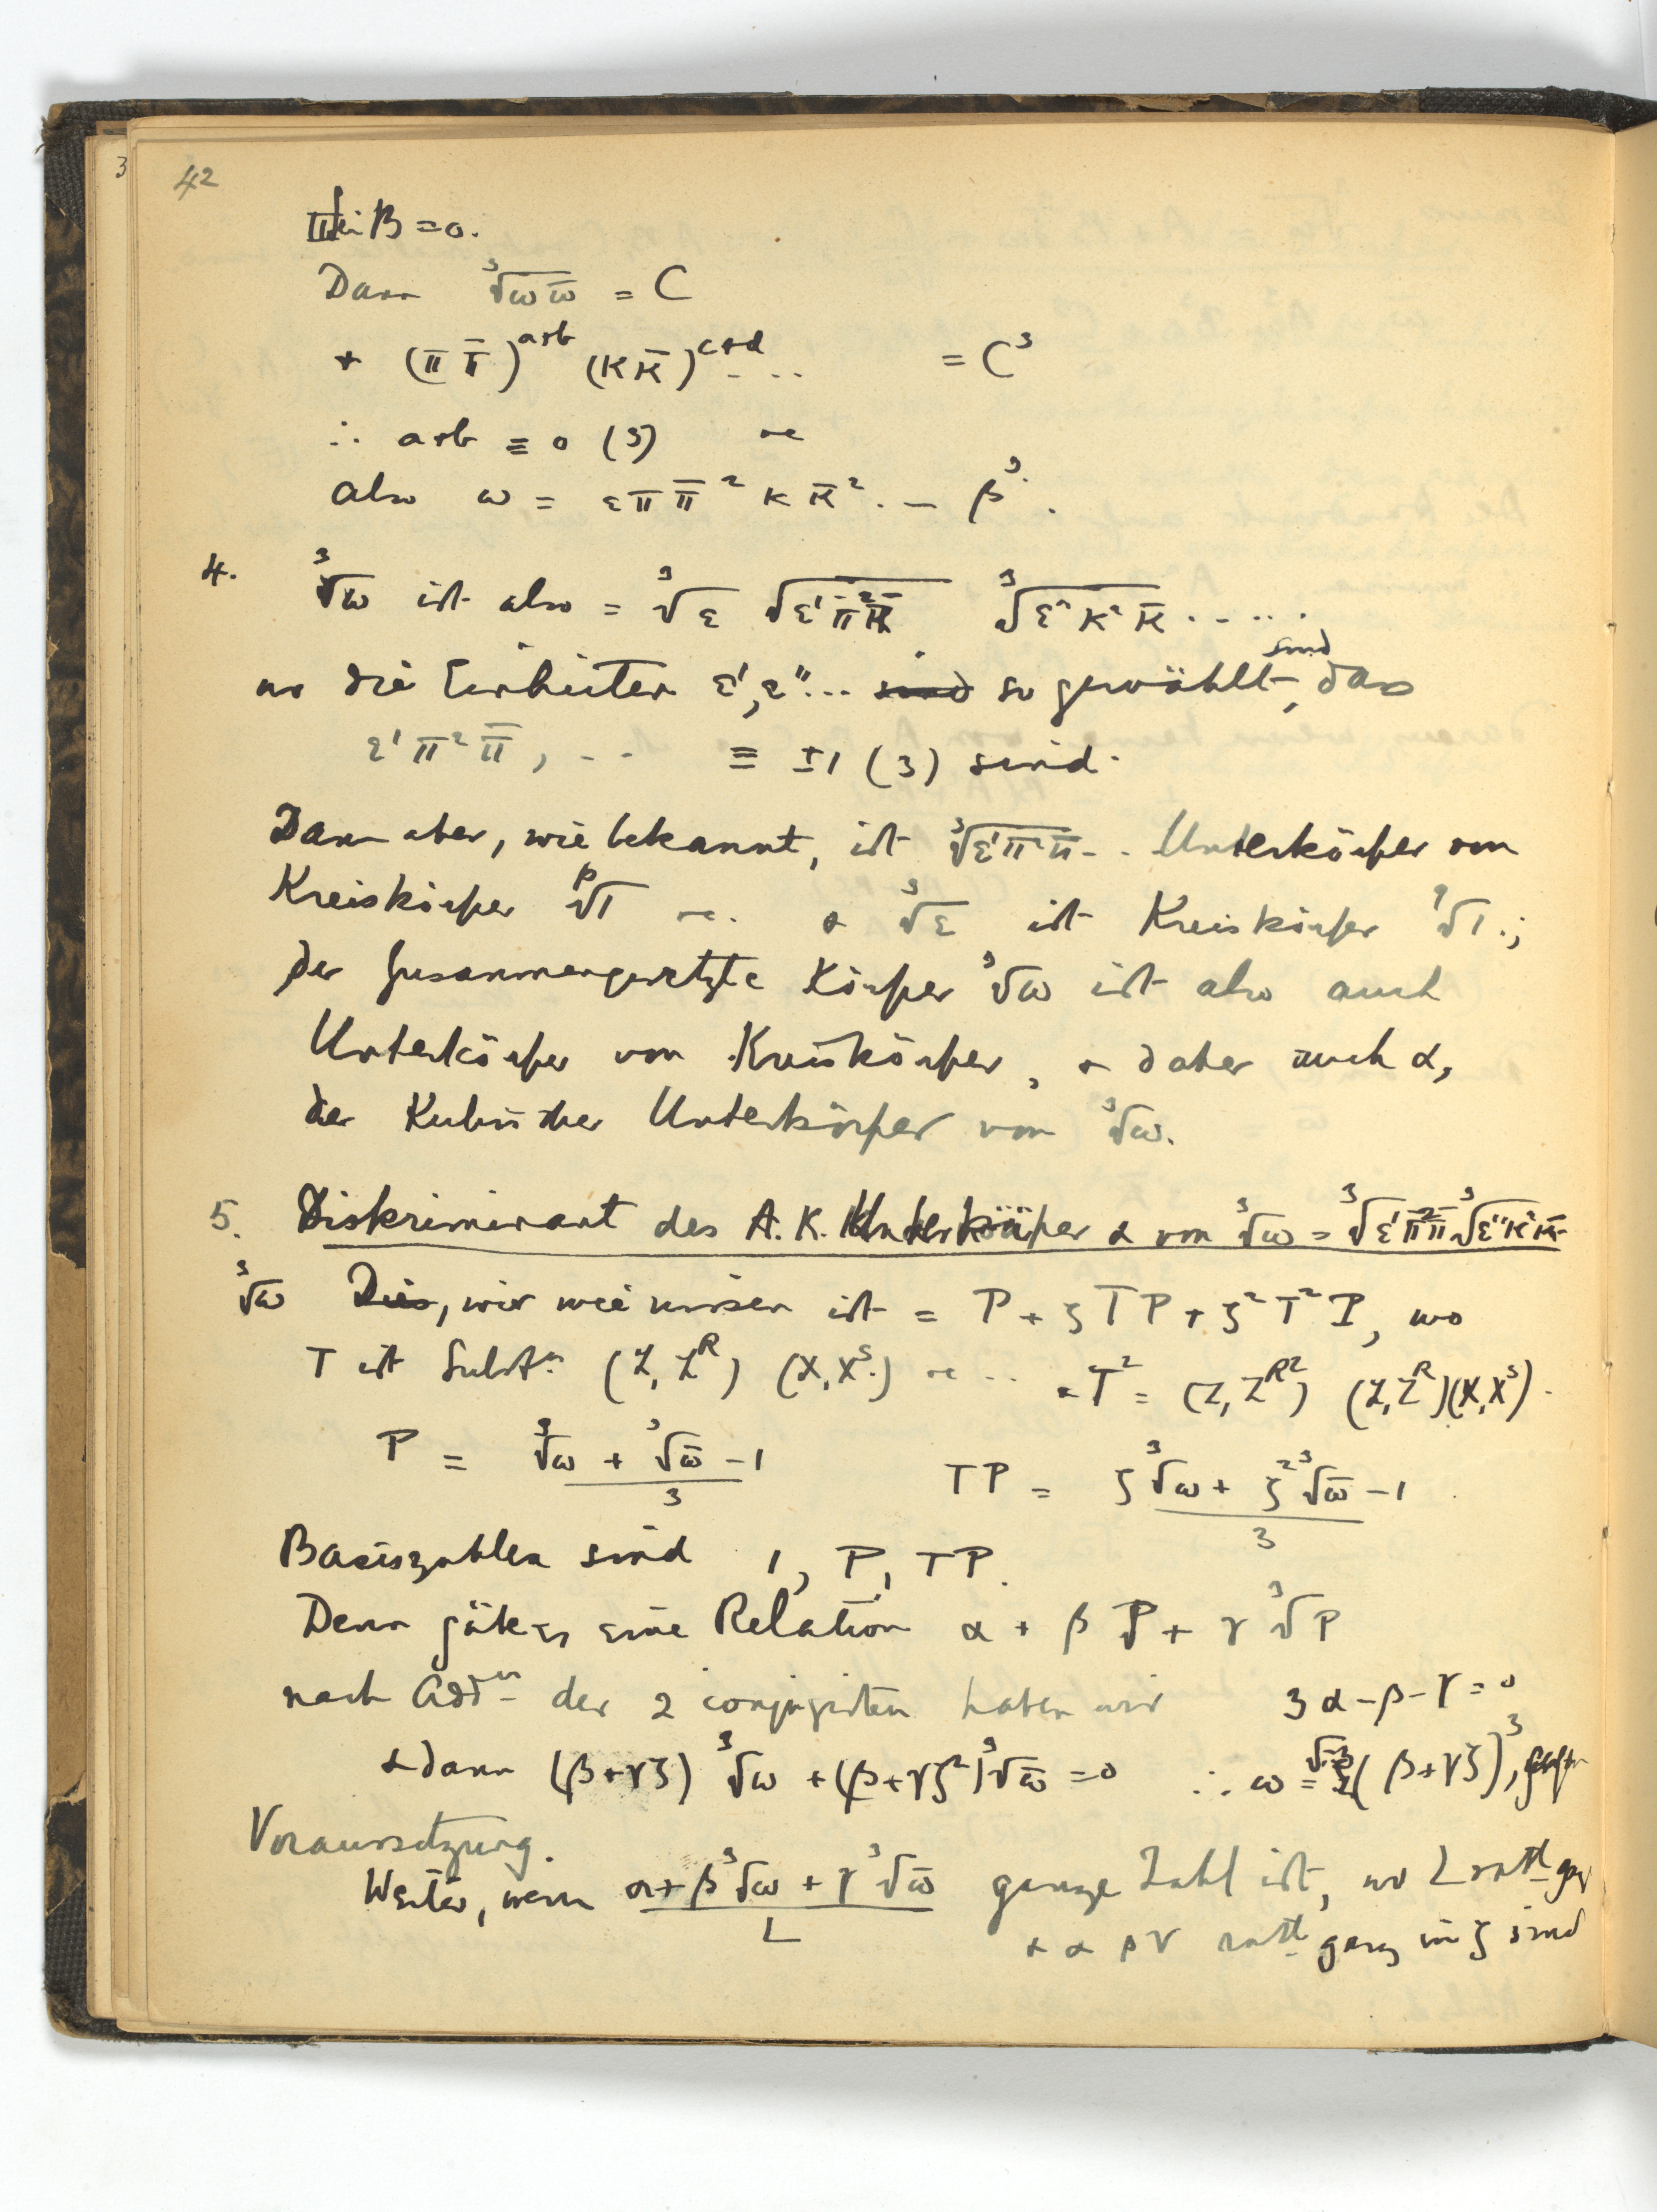 3
42
III Sei B = 0.
Dann ∛ωω̄ = C
+ (π π̄)^{a+b} (κ κ̄)^{c+d} ... = C³
∴ a+b ≡ 0 (3)
also ω = ε π π̄² κ κ̄² . – β³.
4. ∛ω ist also = ∛ε √ε'π²π̄ ∛ε"κ²κ̄ .....
wo die Einheiten ε', ε"... so gewählt sind, dass
ε'π²π̄, .. ≡ ±1 (3) sind.
Dann aber, wie bekannt, ist ∛ε'π²π̄ .. Unterkörper von
Kreiskörper ᵖ√1 + ∛ε ist Kreiskörper ⁹√1.;
der zusammengesetzte Körper ∛ω ist also auch
Unterkörper vom Kreiskörper, + daher auch α,
der Kubischer Unterkörper von ∛ω.
5. Diskriminant des A.K. Unterkörper α von ∛ω = ∛ε'π²π̄ ∛ε"κ²κ̄
∛ω Dies, wir wissen ist = P + ζTP + ζ²T²P, wo
T ist Substⁿ (Z, Z^R) (X, X^S) ... + T² = (Z, Z^{R²}) (Z, Z^R)(X, X^S).
P = (∛ω + ∛ω̄ – 1)/3 TP = (ζ∛ω + ζ²∛ω̄ – 1)/3
Basiszahlen sind 1, P, TP.
Denn gäbe es eine Relation α + β P + γ ∛P
nach Addⁿ der 2 conjugirten haben wir 3α – β – γ = 0
+ dann (β+γζ) ∛ω + (β+γζ²) ∛ω̄ = 0 ∴ ω = √-3 (β+γζ)³,
Voraussetzung.
Weiter, wenn (α + β∛ω + γ∛ω̄)/L ganze Zahl ist, wo L ratl
+ α β γ ratl ganz in ζ sind